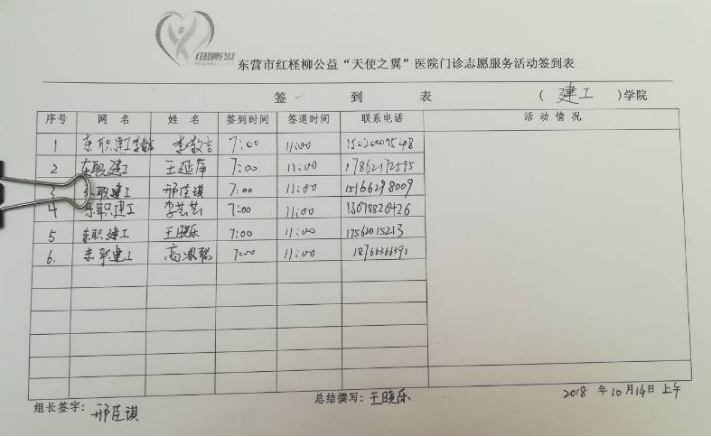 东营市红柽柳公益“天使之翼”医院门诊志愿服务活动签到表
签 到 表 （ 建工 ）学院
序号 网 名 姓 名 签到时间 签退时间 联系电话 活 动 情 况
1 东职建工 李敬言 7:00 11:00
2 东职建工 王延萍 7:00 11:00 17862172595
3 东职建工 邢佳琪 7:00 11:00 15166298009
4 东职建工 李芸芸 7:00 11:00
5 东职建工 王晓乐 7:00 11:00 17562015213
6. 东职建工 7:00 11:00
组长签字： 邢佳琪 总结撰写：王晓乐 2018 年10月14日 上午